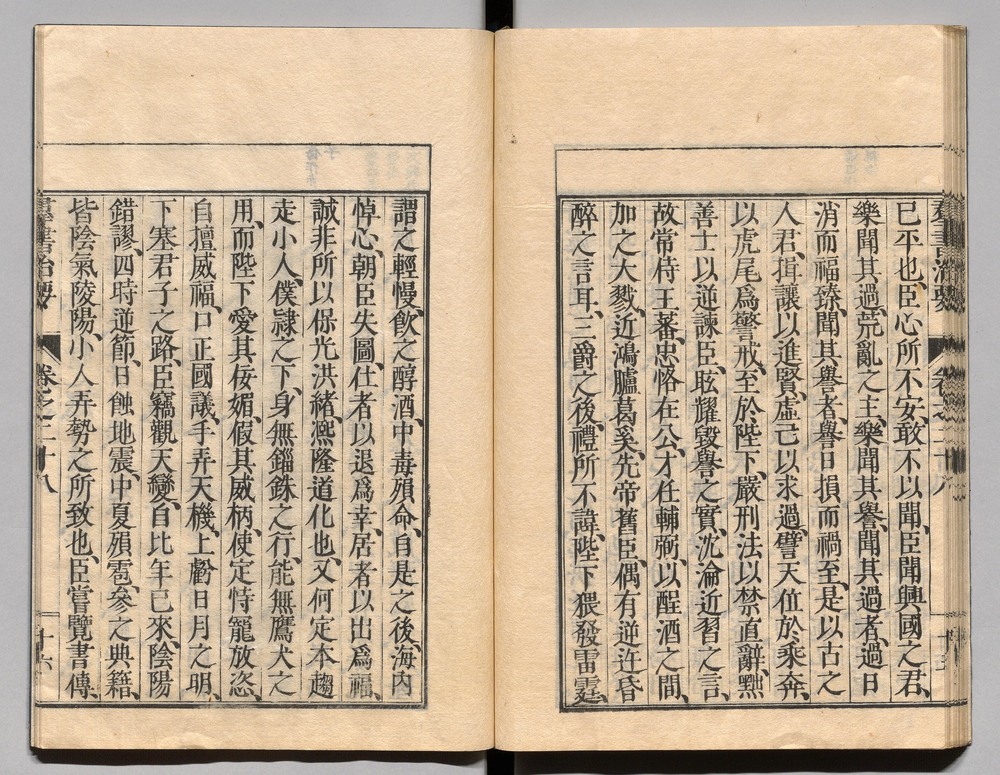 群書治要 卷之二十八 十五
已平也、臣心所不安、敢不以聞、臣聞興國之君、
樂聞其過、荒亂之主、樂聞其譽、聞其過者、過日
消而福臻、聞其譽者、譽日損而禍至、是以古之
人君、揖讓以進賢、虛己以求過、譬天位於乘奔、
以虎尾爲警戒、至於陛下、嚴刑法以禁直辭、黜
善士以逆諫臣、眩耀毀譽之實、沈淪近習之言、
故常侍王蕃、忠恪在公、才任輔弼、以醒酒之間、
加之大戮、近鴻臚葛奚、先帝舊臣、偶有逆迕昏
醉之言耳、三爵之後、禮所不諱、陛下猥發雷霆、
謂之輕慢、飲之醇酒、中毒殞命、自是之後、海內
悼心、朝臣失圖、仕者以退爲幸、居者以出爲福、
誠非所以保光洪緒、熈隆道化也、又何定本趨
走小人、僕隸之下、身無錙銖之行、能無鷹犬之
用、而陛下愛其佞媚、假其威柄、使定恃寵放恣、
自擅威福、口正國議、手弄天機、上虧日月之明、
下塞君子之路、臣竊觀天變、自比年已來、陰陽
錯謬、四時逆節、日蝕地震、中夏殞雹、參之典籍、
皆陰氣陵陽、小人弄勢之所致也、臣嘗覽書傳
群書治要 卷之二十八 十六